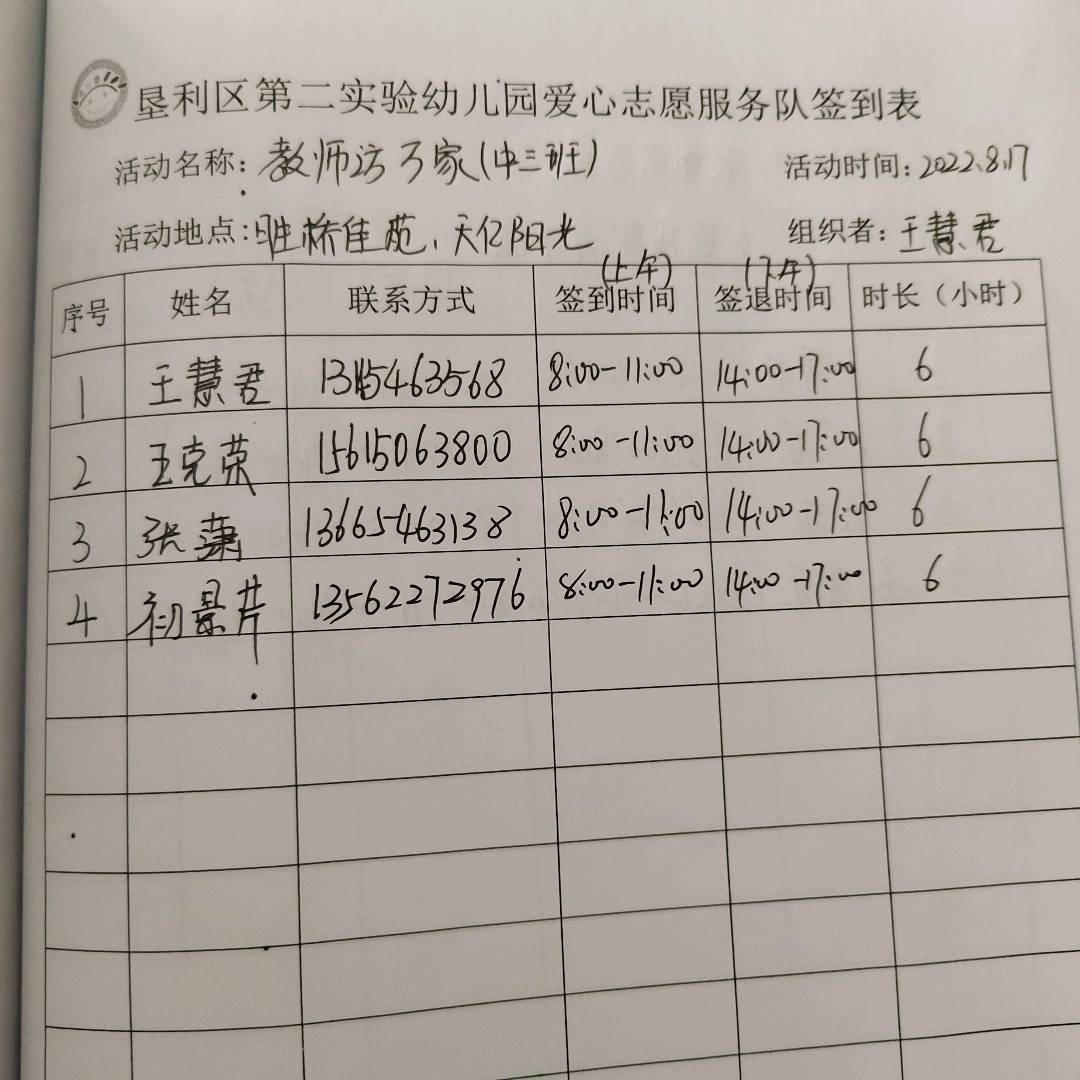 垦利区第二实验幼儿园爱心志愿服务队签到表
活动名称：教师访万家(中三班) 活动时间：2022.8.17
活动地点：胜桥佳苑、天亿阳光 组织者：王慧君
(上午) (下午)
序号 姓名 联系方式 签到时间 签退时间 时长（小时）
1 王慧君 8:00-11:00 14:00-17:00 6
2 王克荣 15615063800 8:00-11:00 14:00-17:00 6
3 张萧 13665463138 8:00-11:00 14:00-17:00 6
4 初景芹 13562272976 8:00-11:00 14:00-17:00 6